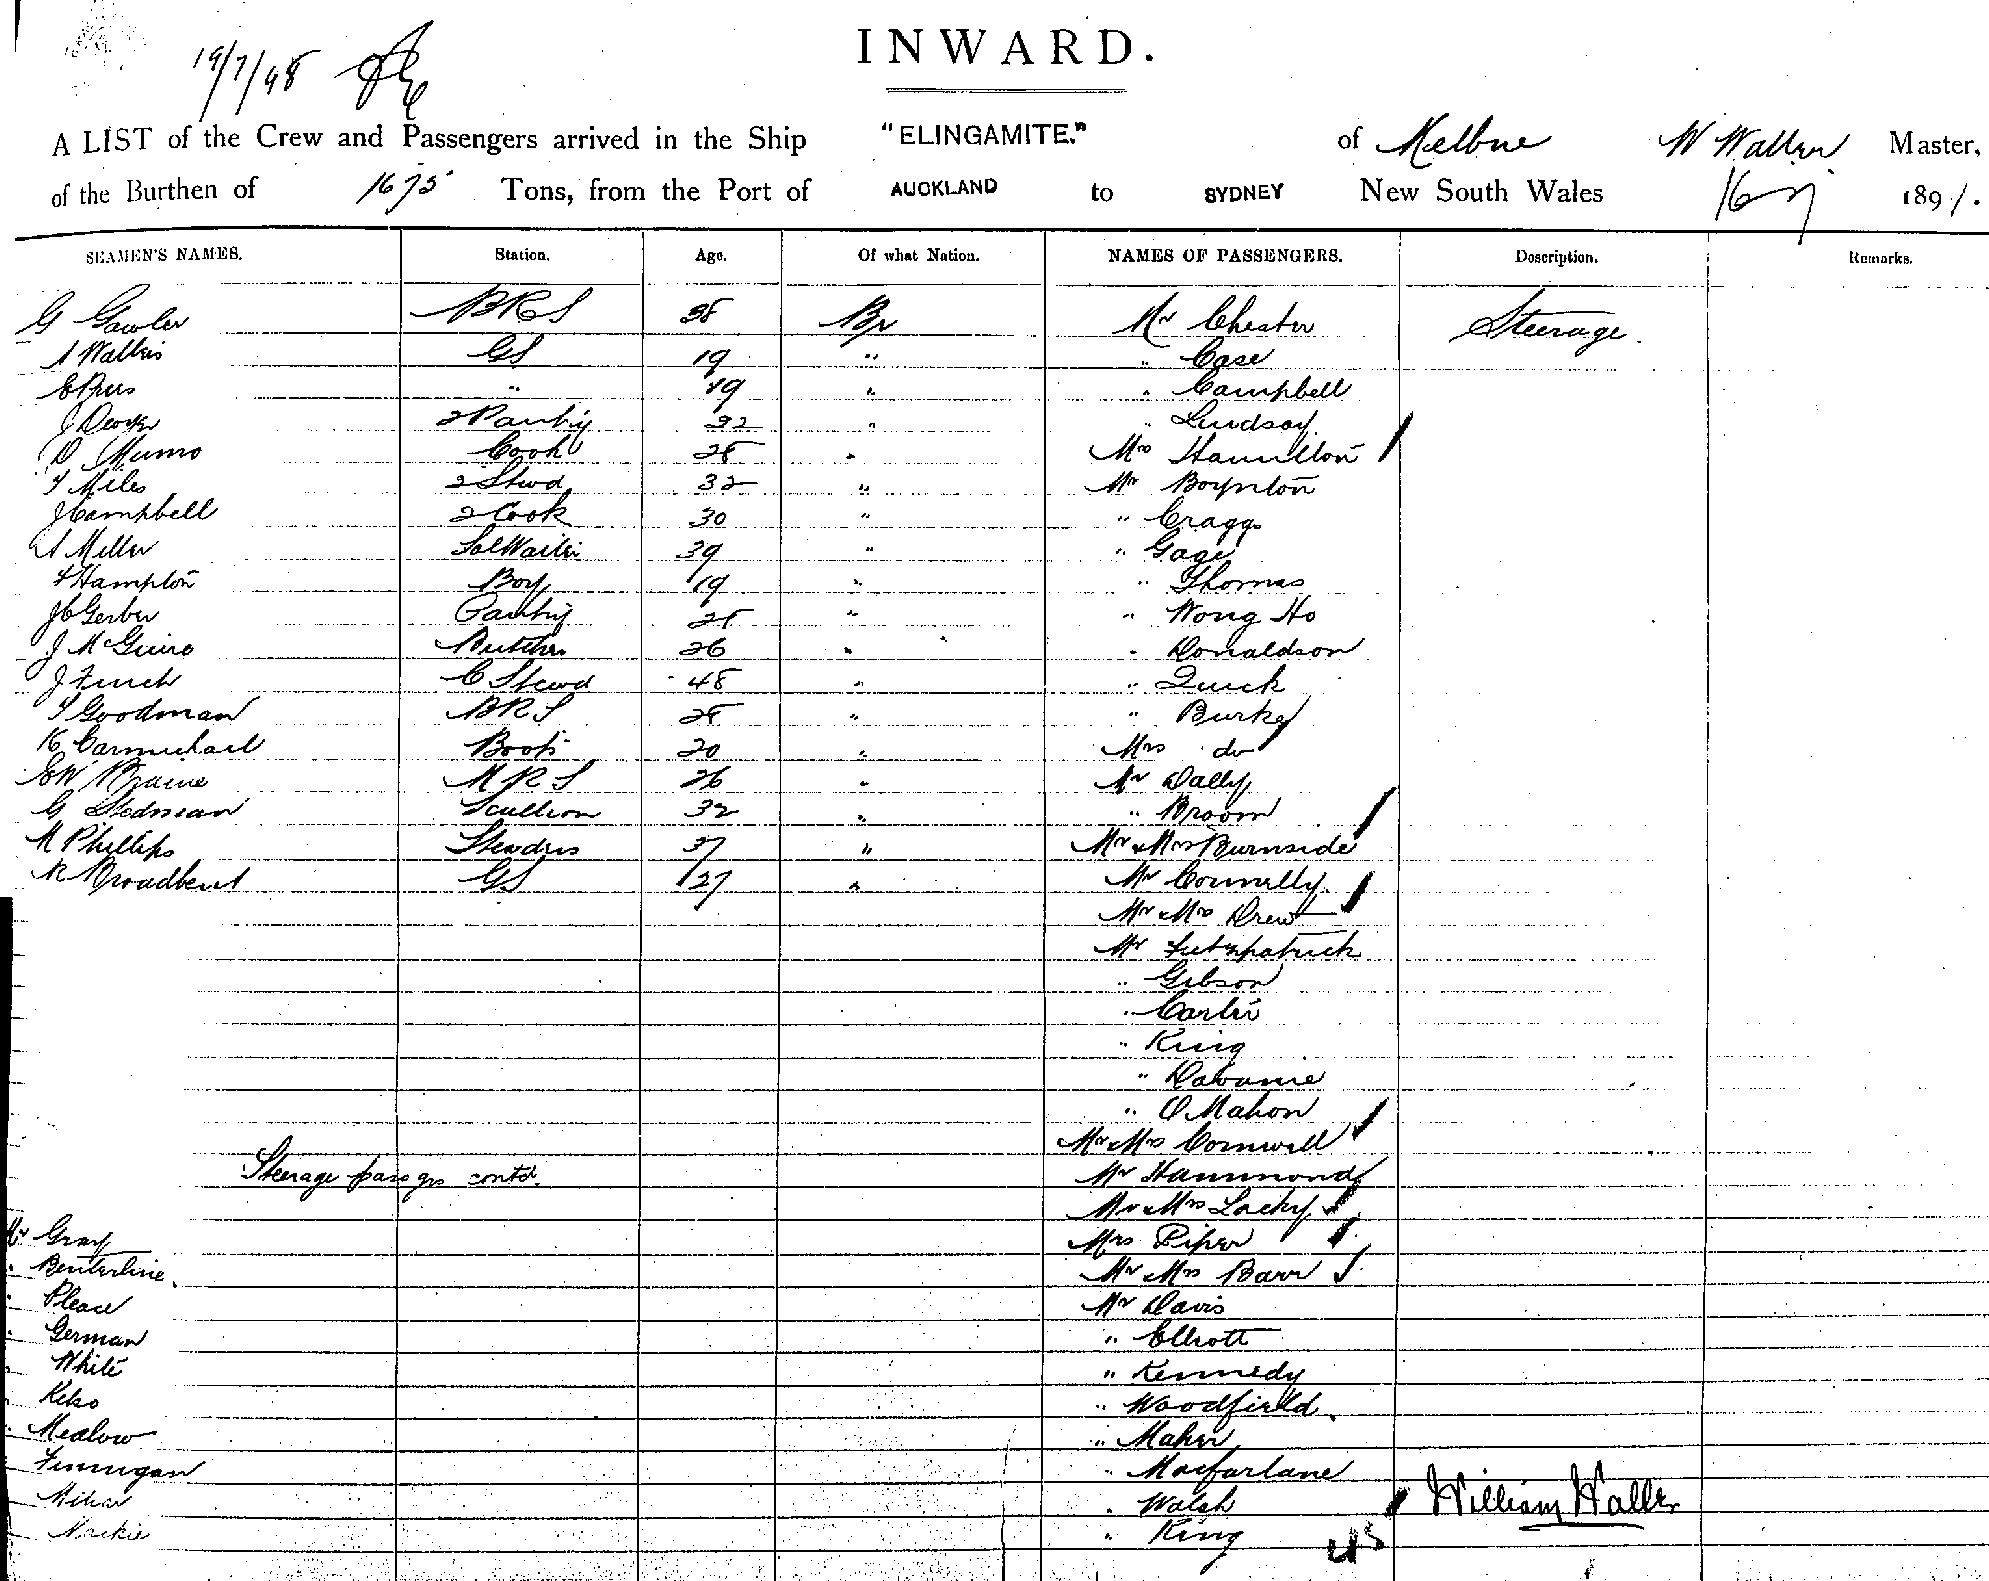 INWARD.
19/7/98
A LIST of the Crew and Passengers arrived in the Ship "ELINGAMITE." of Melbne W Waller Master,
of the Burthen of 1675 Tons, from the Port of AUCKLAND to SYDNEY New South Wales 189
SEAMEN'S NAMES. Station. Age. Of what Nation. NAMES OF PASSENGERS. Description. Remarks.
G Gawler BRS 38 Br Mr Chester Steerage.
GS 19 " " Case
" 19 " " Campbell
2 Pantry 32 " " Lindsay
D Munro Cook 28 " Mrs Hamilton
Miles 2 Stwd 32 " Mr Boynton
J Campbell 2 Cook 30 " " Cragg
A Miller Sal Waiter 39 " " Gage
F Hampton Boy 19 " " Thomas
J C Gerber Pantry " " Wong Ho
J McGuire Butcher 26 " " Donaldson
J Finch C Stewd 48 " " Quick
Goodman BRS 28 " " Burke
K Carmichael Boots 20 " Mrs do
MRS 26 " Mr Dally
G Stedman Scullion 32 " " Broom
M Phillips Stewdess 37 " Mr & Mrs Burnside
R Broadbent GS 27 " Mr Connelly
Mr & Mrs Drew
Mr Fitzpatrick
" Gibson
" Carter
" King
"
" O Mahon
Mr & Mrs Cornwell
Steerage passgrs contd. Mr Hammond
Mr & Mrs Lacky
Mr Gray Mrs Piper
" Benterline. Mr & Mrs Barr
" Pleace Mr Davis
" German " Elliott
" White " Kennedy
" " Woodfield.
" Mealow " Maher
" Finnigan " Macfarlane
" " Walsh William Waller
" " King
45